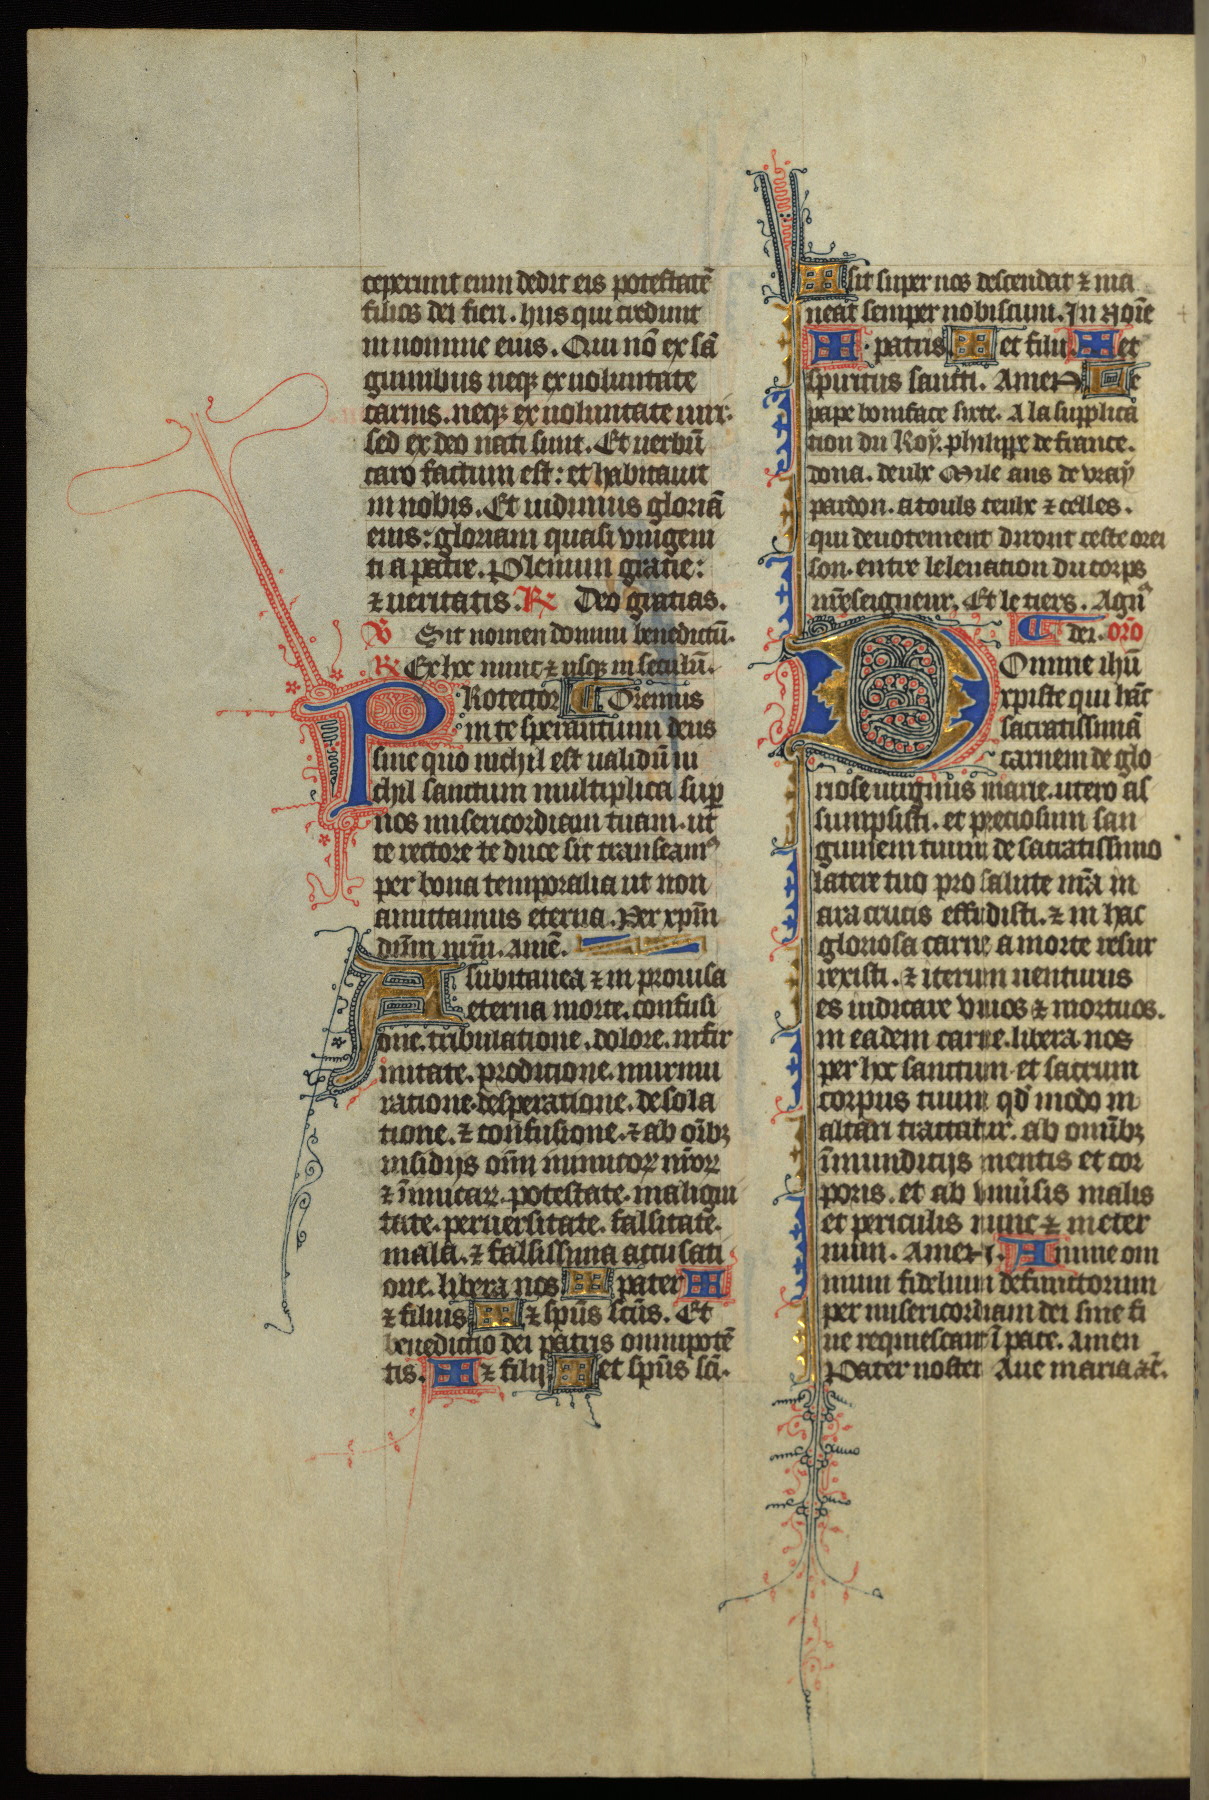 ceperunt eum dedit eis potestatē
filios dei fieri. hiis qui credunt
in nomine eius. Qui nō ex sā
guinibus neqꝫ ex uoluntate
carnis. neqꝫ ex uoluntate uiri.
sed ex deo nati sunt. Et uerbū
caro factum est: et habitauit
in nobis. Et uidimus gloriā
eius: gloriam quasi vnigeni
ti a patre. Plenum gratie:
⁊ ueritatis. ℟ Deo gratias.
℣ Sit nomen domini benedictū.
℟ Ex hoc nunc ⁊ vsqꝫ in seculū.
Protector Oremus
in te sperantium deus
sine quo nichil est ualidū ni
chil sanctum multiplica sup̄
nos misericordiam tuam. ut
te rectore te duce sic transeamꝰ
per bona temporalia ut non
amittamus eterna. Per xp̄m
dn̄m nr̄m. amē.
A subitanea ⁊ in prouisa
eterna morte. confusi
one. tribulatione. dolore. infir
mitate. proditione. murmu
ratione. desperatione. desola
tione. ⁊ confusione. ⁊ ab oībꝫ
insidijs oīm inimicoꝝ nr̄oꝝ
⁊ īimicaꝝ. potestate. maligni
tate. peruersitate. falsitate.
mala. ⁊ falsissima accusati
one. libera nos ✠ pater ✠
⁊ filius ✠ ⁊ sp̄us sc̄us. Et
benedictio dei patris omnipotē
tis. ✠ ⁊ filij ✠ et sp̄us sc̄i.
✠ sit super nos descendat ⁊ ma
neat semper nobiscum. In noīe
✠. patris ✠ et filii ✠ et
spiritus sancti. Amen Le
pape boniface sixte. A la supplica
tion du Roy. philippe de france.
dona. deulx Mile ans de vray
pardon. a touls ceulx ⁊ celles.
qui deuotement diront ceste orei
son. entre leleuation du corps
nr̄e seigneur. Et le tiers. Agnꝰ
dei. or̄o
Domine ihū
xpiste qui hāc
sacratissimā
carnem de glo
riose uirginis marie. utero as
sumpsisti. et preciosum san
guinem tuum de sacratissimo
latere tuo pro salute nr̄a in
ara crucis effudisti. ⁊ in hac
gloriosa carne a morte resur
rexisti. ⁊ iterum uenturus
es iudicare viuos ⁊ mortuos.
in eadem carne. libera nos
per hoc sanctum et sacrum
corpus tuum qd̄ modo in
altari tractatur. ab omībꝫ
īmunditijs mentis et cor
poris. et ab vniūsis malis
et periculis nunc ⁊ in eter
num. Amen. Anime om
nium fidelium defunctorum
per misericordiam dei sine fi
ne requiescant ī pace. Amen
Pater noster Aue maria ⁊c̄.